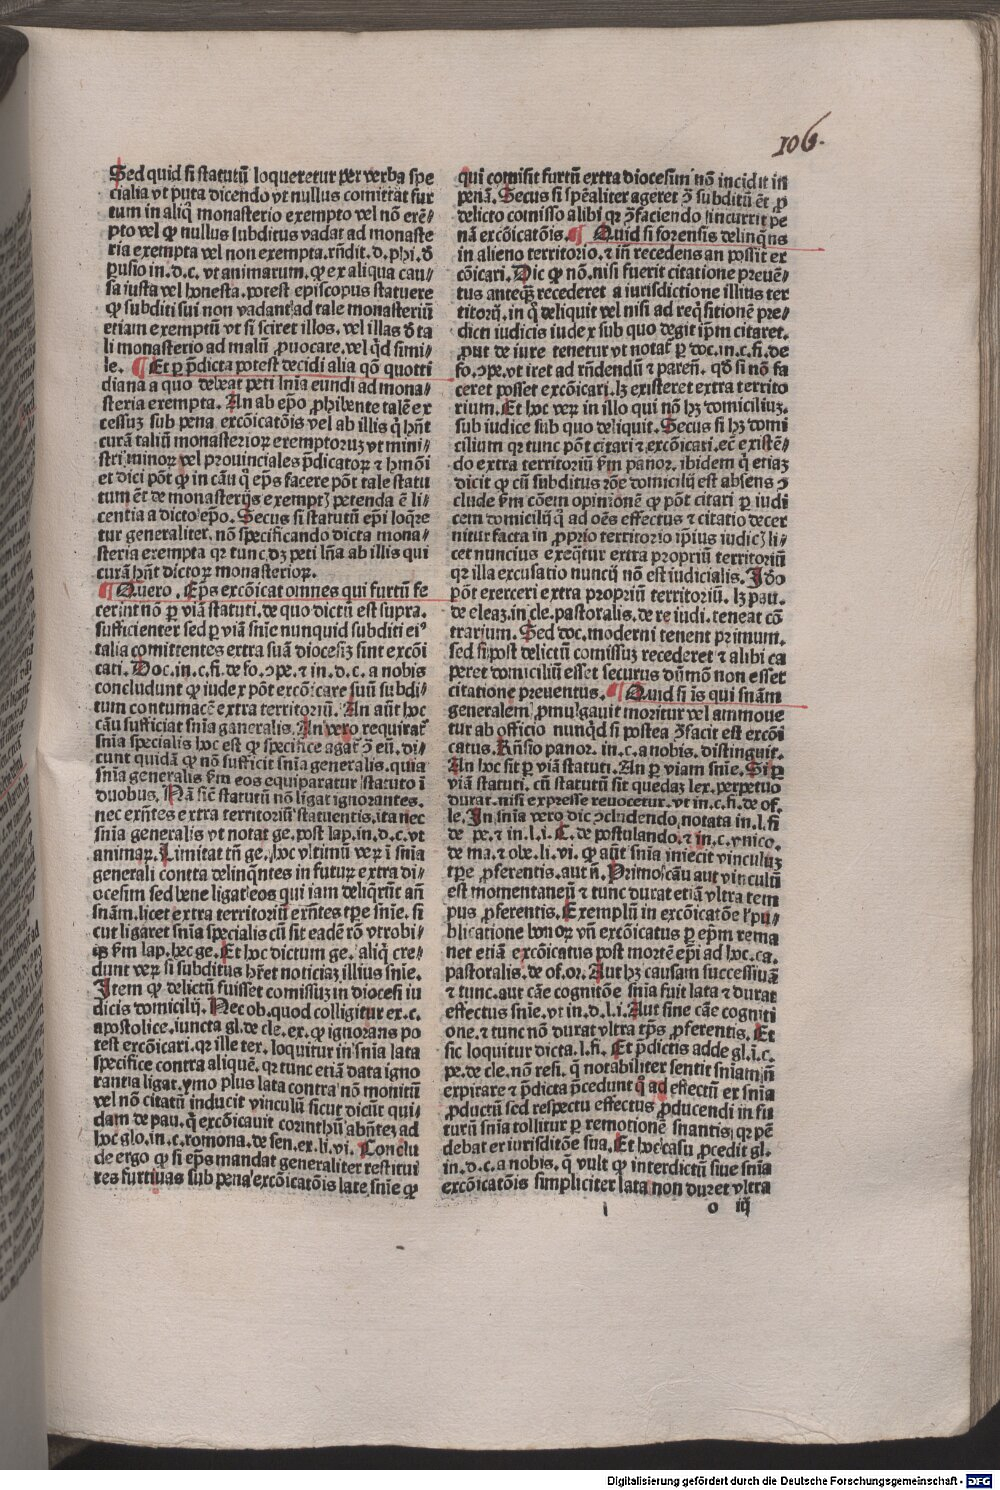 106.
Sed quid si statutū loqueretur per verba spe
cialia vt puta dicendo vt nullus comittat fur
tum in aliq̄ monasterio exempto vel nō exē⸗
pto vel ꝙ nullus subditus vadat ad monaste
ria exempta vel non exempta. rn̄dit. d. phi. d̄
ꝑusio in. d. c. vt animarum. ꝙ ex aliqua cau⸗
sa iusta vel honesta. potest episcopus statuere
ꝙ subditi sui non vadant ad tale monasteriū
etiam exemptū vt si sciret illos. vel illas d̄ ta
li monasterio ad malū ꝓuocare. vel qd̄ simi⸗
le. ¶ Et ꝑ p̄dicta potest decidi alia qō quotti
diana a quo debeat peti lnīa eundi ad mona⸗
steria exempta. An ab epō ꝓhibente talē ex
cessuꝫ sub pena excōicatōis vel ab illis q̄ hn̄t
curā taliū monasterioꝝ exemptoruꝫ vt mini⸗
stri minoꝝ vel prouinciales p̄dicatoꝝ ⁊ hmōi
et dici pōt ꝙ in cāu q̄ ep̄s facere pōt tale statu
tum ēt de monasterijs exemptꝭ petenda ē li⸗
centia a dicto epō. Secus si statutū epī loq̄re
tur generaliter. nō specificando dicta mona⸗
steria exempta qꝛ tunc dꝫ peti lnīa ab illis qui
curā hn̄t dictoꝝ monasterioꝝ.
¶ Quero. Ep̄s excōicat omnes qui furtū fe
cerint nō ꝑ viā statuti. de quo dictū est supra.
sufficienter sed ꝑ viā snīe nunquid subditi eiꝰ
talia comittentes extra suā diocesiꝫ sint excōi
cati. Doc. in. c. fi. de fo. ꝯpe. ⁊ in. d. c. a nobis
concludunt ꝙ iudex pōt excōicare suū subdi⸗
tum contumacē extra territoriū. An aūt hoc
cāu sufficiat snīa ganeralis. An vero requirat̄
snīa specialis hoc est ꝙ specifice agat̄ ꝯ̄ eū. di⸗
cunt quidā ꝙ nō sufficit snīa generalis. quia
snīa generalis fm̄ eos equiparatur statuto ī
duobus. Nā sic̄ statutū nō ligat ignorantes.
nec exn̄tes extra territoriū statuentis, ita nec
snīa generalis vt notat ge. post lap. in. d. c. vt
animaꝝ. Limitat tn̄ ge. hoc vltimū veꝝ ī snīa
generali contta delinq̄ntes in futuꝝ extra di⸗
ocesim sed bene ligat eos qui iam deliq̄rūt an̄
snām. licet extra territoriū exn̄tes tp̄e snīe. si
cut ligaret snīa specialis cū sit eadē rō vtrobi⸗
qꝫ fm̄ lap. hec ge. Et hoc dictum ge. aliq̄ cre⸗
dunt veꝝ si subditus hr̄et noticiaꝫ illius snīe.
Item ꝙ delictū fuisset comissuꝫ in diocesi iu
dicis domicilij. Nec ob. quod colligitur ex. c.
apostolice. iuncta gl. de cle. ex. ꝙ ignorans po
test excōicari. qꝛ ille tex. loquitur in snīa lata
specifice contra aliquē. qꝛ tunc etiā data igno
rantia ligat. ymo plus lata contra nō monitū
vel nō citatū inducit vinculū sicut dicūt qui⸗
dam de pau. q̄ excōicauit corinthū abn̄teꝫ ad
hoc glo. in. c. romona. de sen. ex. li. vi. Conclu
de ergo ꝙ si ep̄s mandat generaliter restitui
res furtiuas sub pena excōicatōis late snīe ꝙ
qui comisit furtū extra diocesim nō incidit in
penā. Secus si spēaliter ageret ꝯ̄ subditū ēt ꝓ
delicto comisso alibi qꝛ ꝯ̄faciendo incurrit pe
nā excōicatōis. ¶ Quid si forensis delinq̄ns
in alieno territorio. ⁊ in̄ recedens an possit ex
cōicari. Dic ꝙ nō. nisi fuerit citatione preuē⸗
tus anteqꝫ recederet a iurisdictione illius ter
titorij. in q̄ deliquit vel nisi ad req̄sitionē pre⸗
dicti iudicis iudex sub quo degit ip̄m citaret.
ꝓut de iure tenetur vt notat̄ ꝑ doc. in. c. fi. de
fo. ꝯpe. vt iret ad rn̄dendū ⁊ paren̄. qd̄ si nō fa
ceret posset excōicari. lꝫ existeret extra territo
rium. Et hoc veꝝ in illo qui nō hꝫ domiciliuꝫ.
sub iudice sub quo deliquit. Secus si hꝫ domi
cilium qꝛ tunc pōt citari ⁊ excōicari. ec̄ existē⸗
do extra territoriū fm̄ panor. ibidem q̄ etiaꝫ
dicit ꝙ cū subditus rōe domicilij est absens ꝯ
clude fm̄ cōem opinionē ꝙ pōt citari ꝑ iudi
cem domicilij q̄ ad oēs effectus ⁊ citatio decer
nitur facta in ꝓprio territorio ip̄ius iudicꝭ li⸗
cet nuncius exeq̄tur extra propriū territoriū
qꝛ illa excusatio nuncij nō est iudicialis. Idō
pōt exerceri extra propriū territoriū. lꝫ pau.
de eleaꝫ. in cle. pastoralis. de re iudi. teneat cō
trarium. Sed doc. moderni tenent primum.
sed si post delictū comissuꝫ recederet ⁊ alibi ca
peret domiciliū esset securus dūmō non esset
citatione preuentus. ¶ Quid si is qui snām
generalem ꝓmulgauit moritur vel ammoue
tur ab officio nunqd̄ si postea ꝯ̄facit est excōi
catus. Rn̄sio panor. in. c. a nobis. distinguit.
An hoc sit ꝑ viā statuti. An ꝑ viam snīe. Si ꝑ
viā statuti. cū statutū sit quedaꝫ lex. perpetuo
durat. nisi expresse reuocetur. vt in. c. fi. de of.
le. In snīa vero dic ꝯcludendo, notata in. l. fi
de pe. ⁊ in. l. i. C. de postulando. ⁊ in. c. vnico.
de ma. ⁊ obe. li. vi. ꝙ aūt snīa iniecit vinculuꝫ
tp̄e ꝓferentis. aut n̄. Primo cāu aut vinculū
est momentaneū ⁊ tunc durat etiā vltra tem
pus ꝓferentis. Exemplū in excōicatōe ł pu⸗
blicatione bonoꝝ vn̄ excōicatus ꝑ ep̄m rema
net etiā excōicatus post mortē epī ad hoc. ca.
pastoralis. de of. or. Aut hꝫ causam successiuā
⁊ tunc. aut cāe cognitōe snīa fuit lata ⁊ durat
effectus snīe. vt in. d. l. i. Aut sine cāe cogniti
one. ⁊ tunc nō durat vltra tp̄s ꝓferentis. Et
sic loquitur dicta. l. fi. Et p̄dictis adde gl. ī. c.
pe. de cle. nō resi. q̄ notabiliter sentit snīam in̄
expirare ⁊ p̄dicta ꝓcedunt q̄ ad effectū ex snīa
ꝓductū sed respectu effectus ꝓducendi in fu
turū snīa tollitur ꝑ remotionē snantis, qꝛ pē
debat ex iurisditōe sua. Et hoc casu ꝓcedit gl.
in. d. c. a nobis. q̄ vult ꝙ interdictū siue snīa
excōicatōis simpliciter lata non duret vltra
o iij
Digitalisierung gefördert durch die Deutsche Forschungsgemeinschaft - DFG